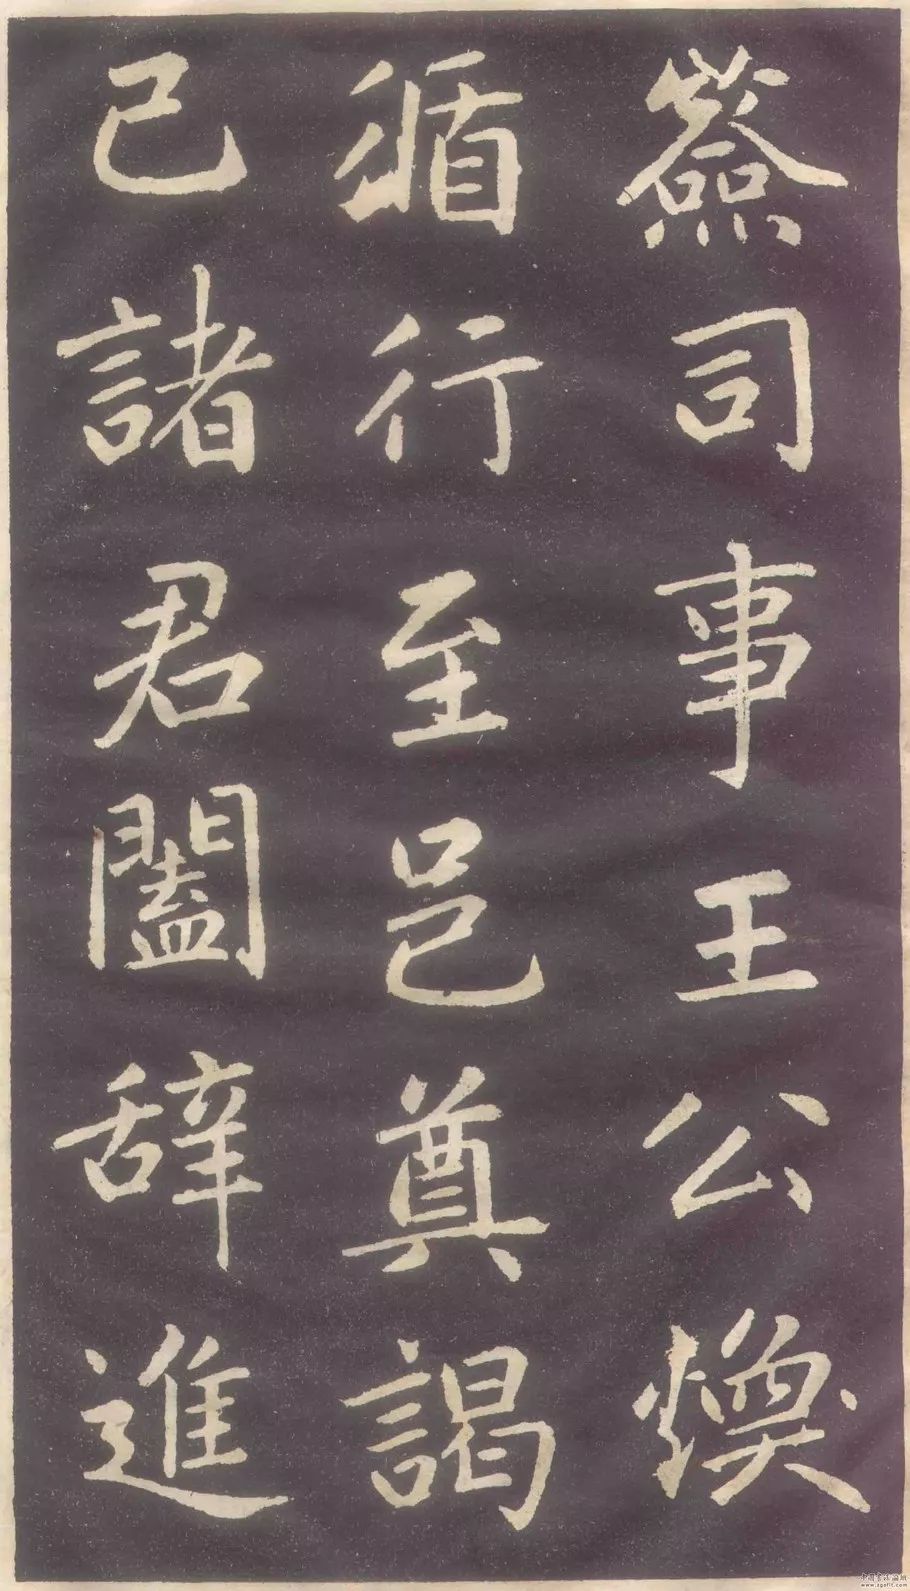 簽司事王公煥
循行至邑奠謁
已諸君闔辞進